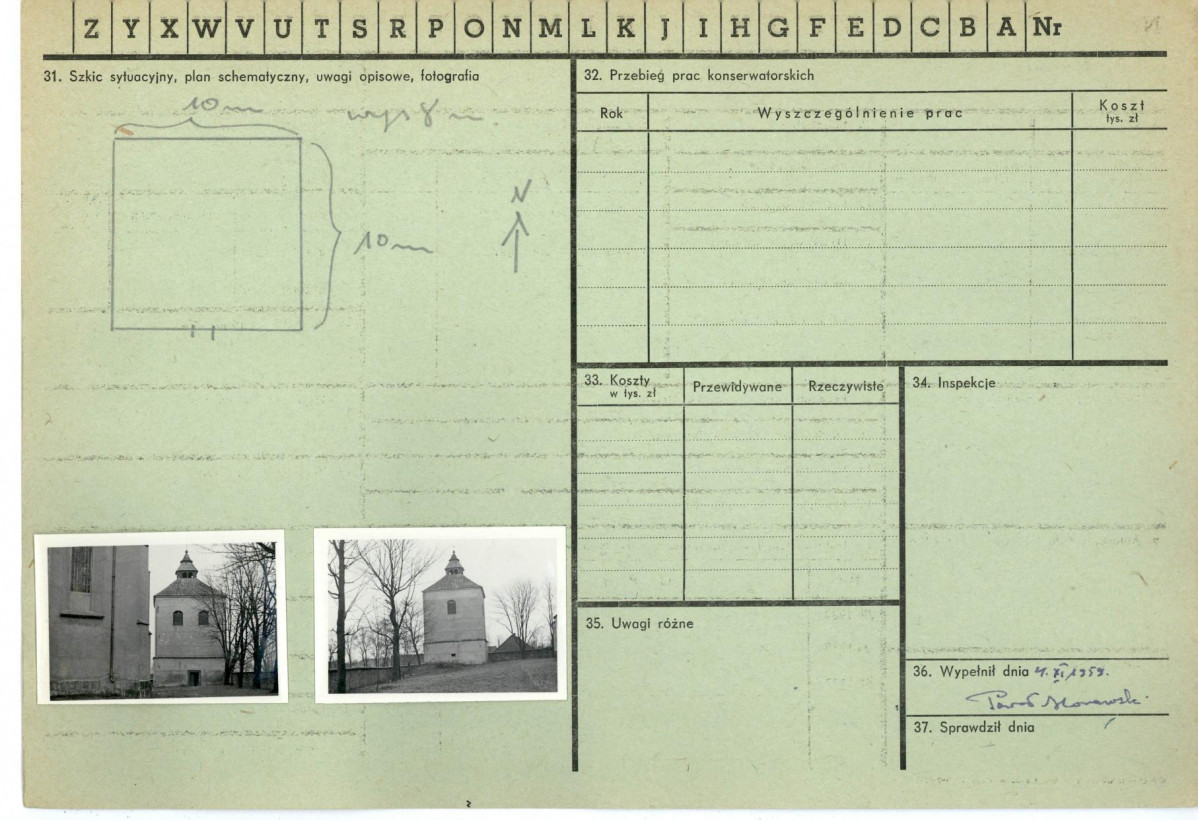 Z Y X W V U T S R P O N M L K J I H G F E D C B A Nr
31. Szkic sytuacyjny, plan schematyczny, uwagi opisowe, fotografia
10 m
wys 8 m.
10 m
N
32. Przebieg prac konserwatorskich
Rok
Wyszczególnienie prac
Koszt
tys. zł
33. Koszty
w tys. zł
Przewidywane
Rzeczywiste
34. Inspekcje
35. Uwagi różne
36. Wypełnił dnia 4. XI 1959.
37. Sprawdził dnia